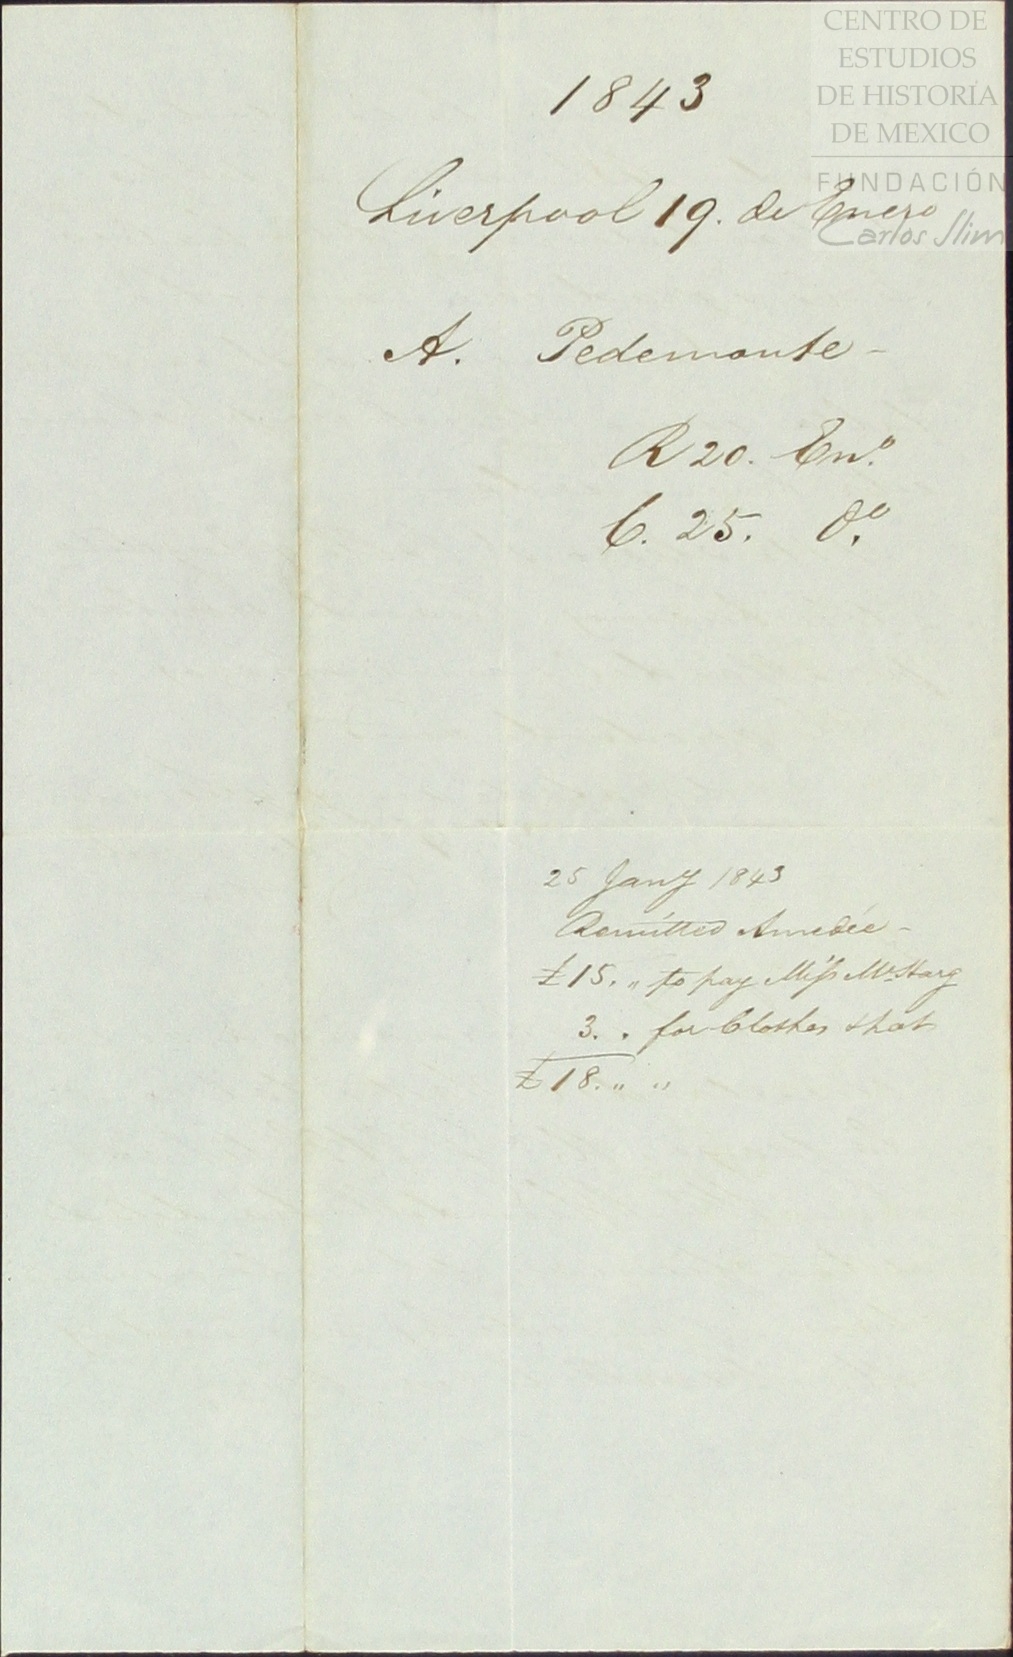 CENTRO DE
ESTUDIOS
DE HISTORIA
DE MEXICO
FUNDACIÓN
Carlos Slim
1843
Liverpool 19. de Enero
A. Pedemonte -
R 20. En.º
C. 25. d.º
25 Jany 1843
Remitted Amedée -
£15. „ to pay Miss
3. . for Clothes &
£18. „ „